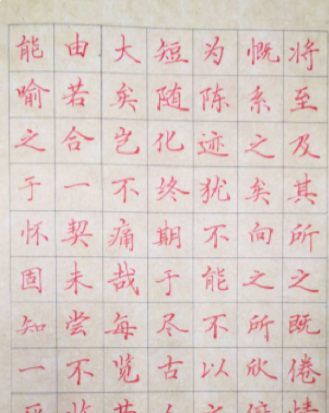 将至及其所之既倦情
慨系之矣向之所欣
为陈迹犹不能不以之
短随化终期于尽古人
大矣岂不痛哉每览
由若合一契未尝不临
能喻之于怀固知一